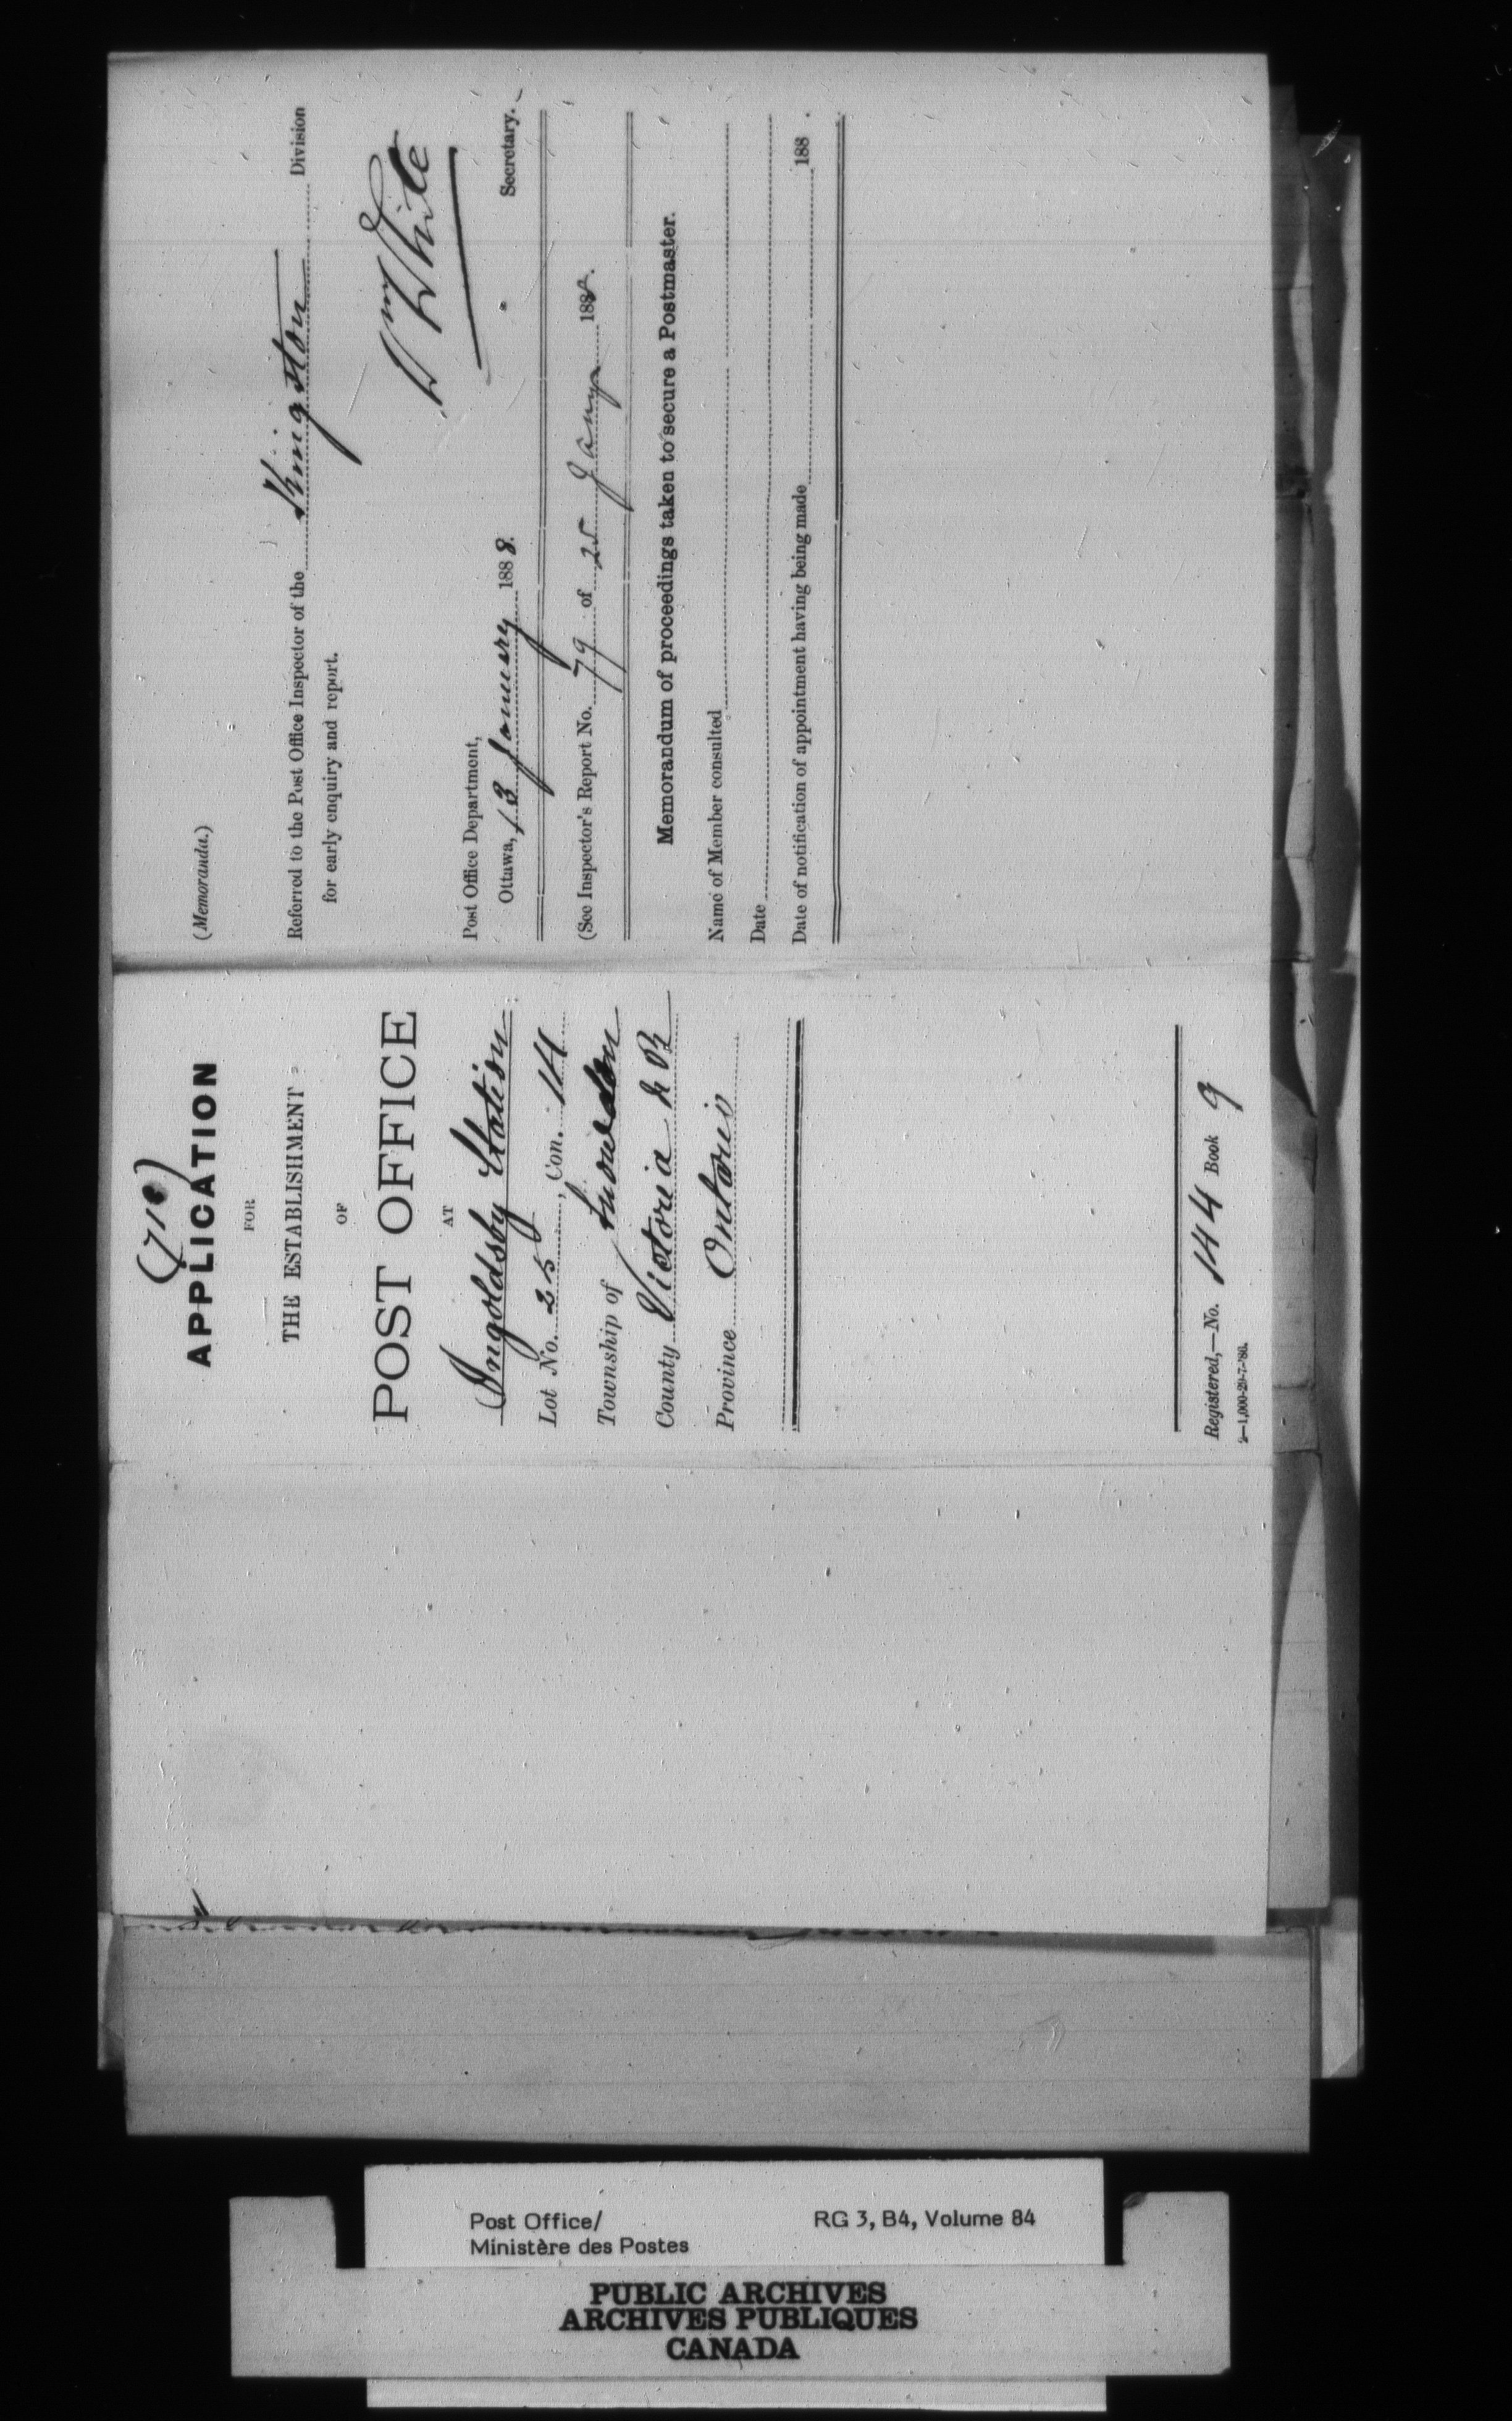 (710)
APPLICATION
FOR
THE ESTABLISHMENT
OF
POST OFFICE
AT
Ingoldsby Station
Lot No. 25, Con. 14
Township of Snowdon
County Victoria N R
Province Ontario
Registered,—No. 144 Book 9
2—1,000-29-7-'86.
(Memoranda.)
Referred to the Post Office Inspector of the Kingston Division
for early enquiry and report.
Wm White
Secretary.
Post Office Department,
Ottawa, 13 January 1888.
(See Inspector's Report No. 79 of 25 Jany 1888.
Memorandum of proceedings taken to secure a Postmaster.
Name of Member consulted
Date
Date of notification of appointment having being made 188 .
Post Office/
Ministère des Postes
RG 3, B4, Volume 84
PUBLIC ARCHIVES
ARCHIVES PUBLIQUES
CANADA